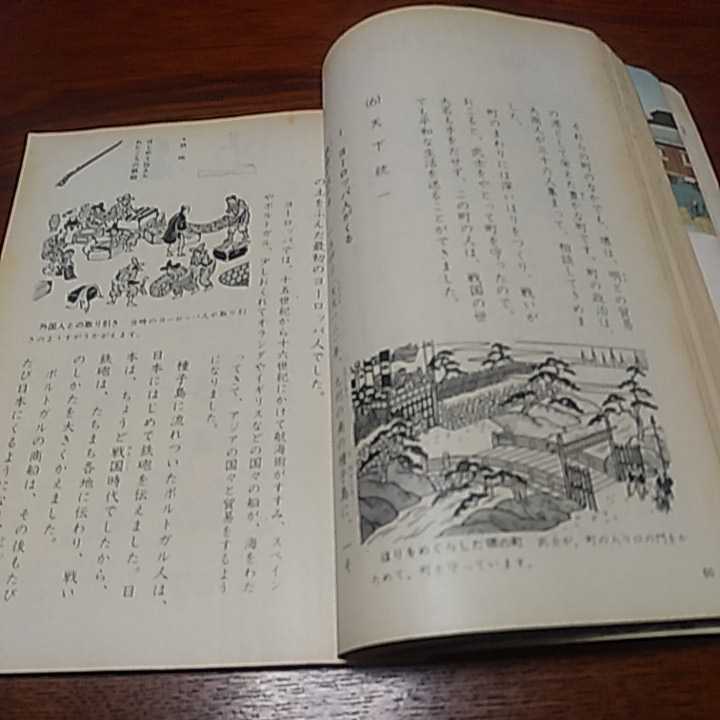 それらの町のなかでも、堺は、明との貿易
の港として栄えた豊かな町です。町の政治は、
大商人が三十六人集まって、相談してきめま
した。
町のまわりには深いほりをつくり、戦いが
おこると、武士をやとって町を守ったので、
大名も手をだせず、この町の人は、戦国の世
でも平和な生活を送ることができました。
(6) 天下統一
1 ヨーロッパ人がくる
ほりをめぐらした堺の町 武士が、町の入り口の門をか
ためて、町を守っています。
60
の土をふんだ最初のヨーロッパ人でした。
ヨーロッパでは、十五世紀から十六世紀にかけて航海術がすすみ、スペイン
やポルトガル、すこしおくれてオランダやイギリスなどの国々の船が、海をわた
ってきて、アジアの国々と貿易をするよう
になりました。
種子島に流れついたポルトガル人は、
日本にはじめて鉄砲を伝えました。日
本は、ちょうど戦国時代でしたから、
鉄砲は、たちまち各地に伝わり、戦い
のしかたを大きくかえました。
ポルトガルの商船は、その後もたび
たび日本にくるように
外国人との取り引き 当時のヨーロッパ人が取り引
きのようすがうかがえます。